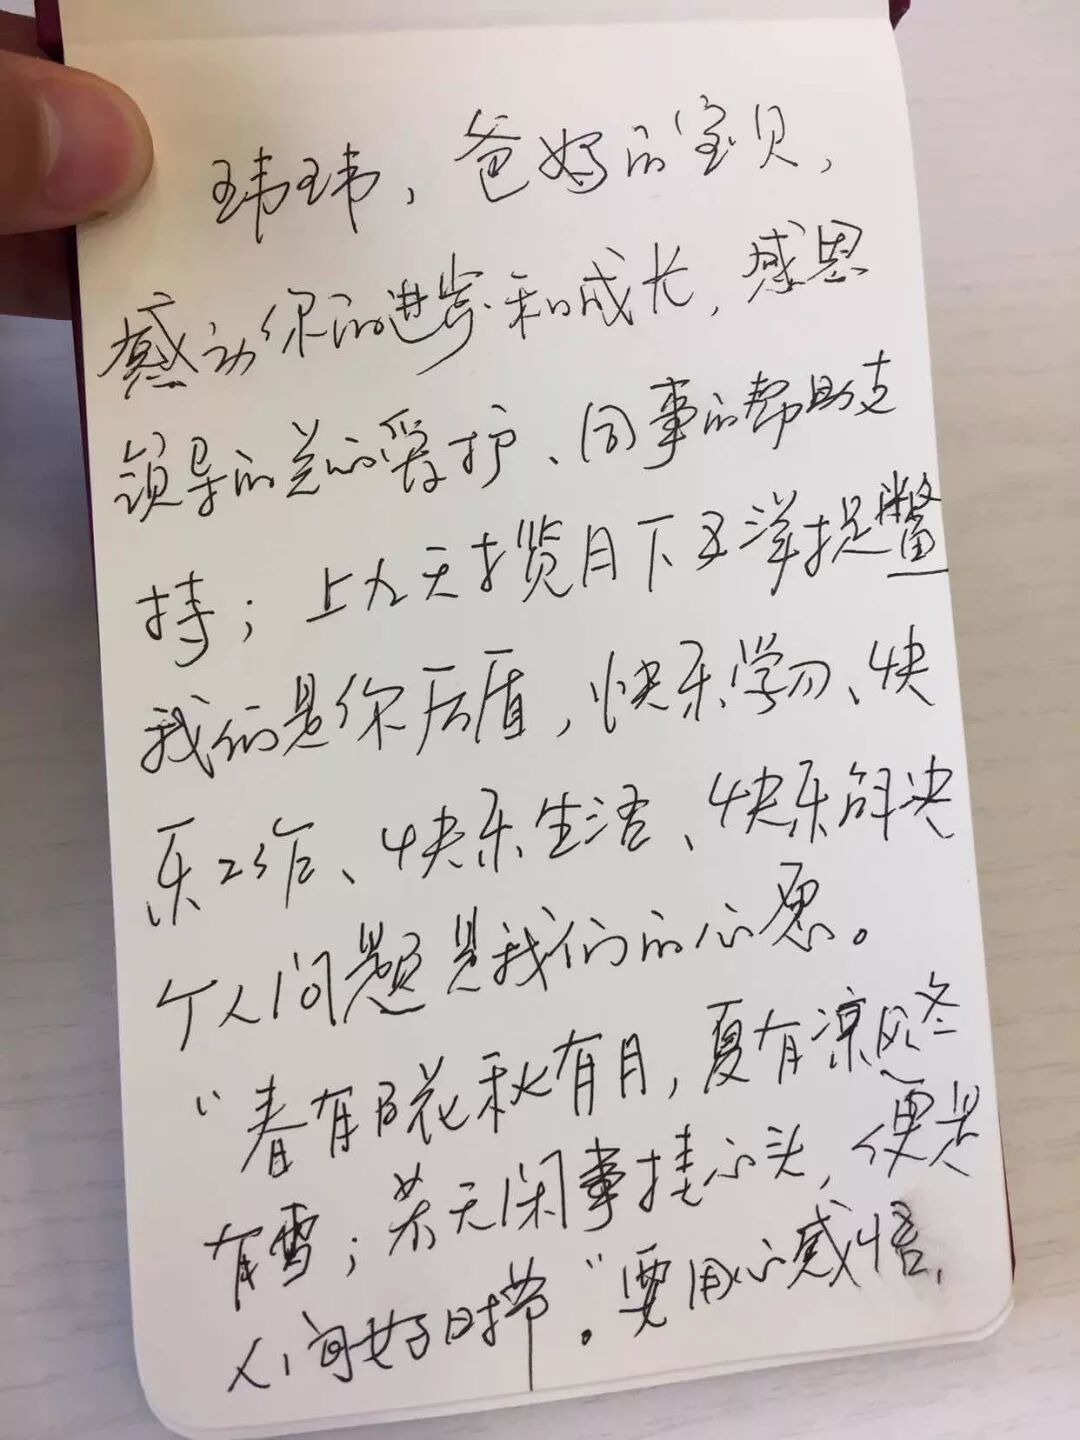 玮玮，爸妈的宝贝，
感动你的进步和成长，感恩
领导的关心爱护、同事的帮助支
持；上九天揽月下五洋捉鳖
我们是你后盾，快乐学习、快
乐工作、快乐生活、快乐解决
个人问题是我们的心愿。
“春有百花秋有月，夏有凉风冬
有雪；若无闲事挂心头，便是
人间好时节。”要用心感悟，